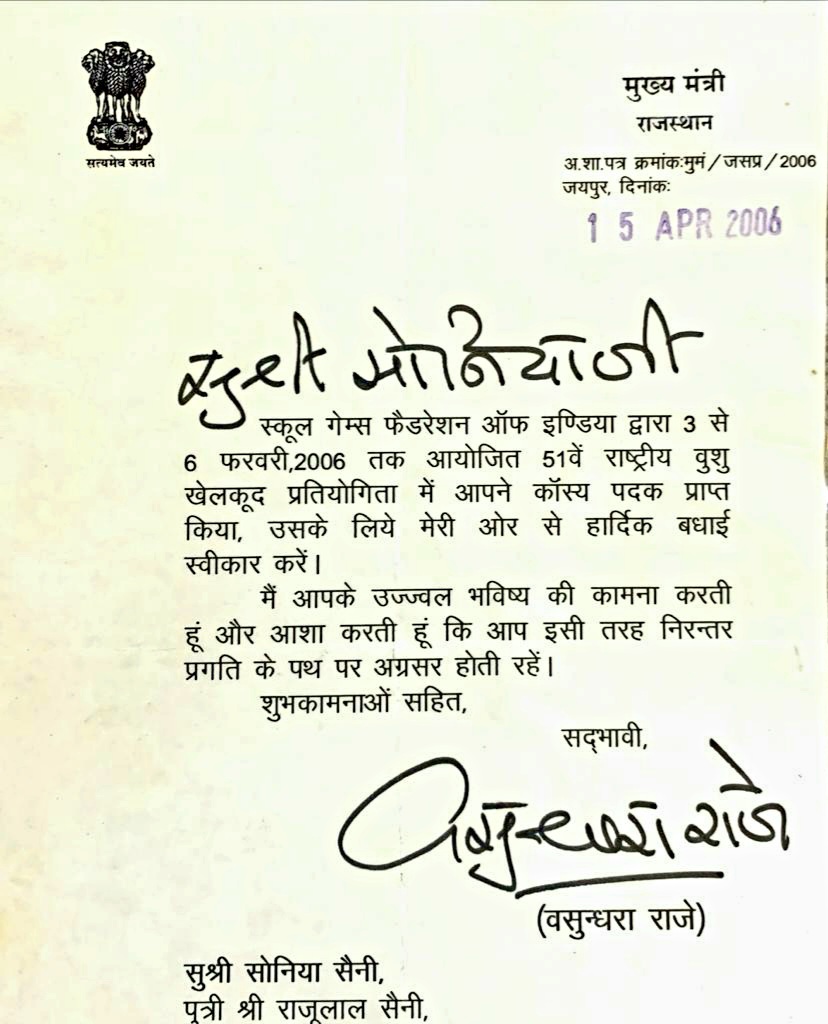 सत्यमेव जयते
मुख्य मंत्री
राजस्थान
अ.शा.पत्र क्रमांक:मुमं/जसप्र/2006
जयपुर, दिनांक:
15 APR 2006
सुश्री सोनिया जी
स्कूल गेम्स फैडरेशन ऑफ इण्डिया द्वारा 3 से
6 फरवरी,2006 तक आयोजित 51वें राष्ट्रीय वुशु
खेलकूद प्रतियोगिता में आपने कॉस्य पदक प्राप्त
किया, उसके लिये मेरी ओर से हार्दिक बधाई
स्वीकार करें।
मैं आपके उज्ज्वल भविष्य की कामना करती
हूं और आशा करती हूं कि आप इसी तरह निरन्तर
प्रगति के पथ पर अग्रसर होती रहें।
शुभकामनाओं सहित,
सद्भावी,
वसुन्धरा राजे
(वसुन्धरा राजे)
सुश्री सोनिया सैनी,
पुत्री श्री राजूलाल सैनी,